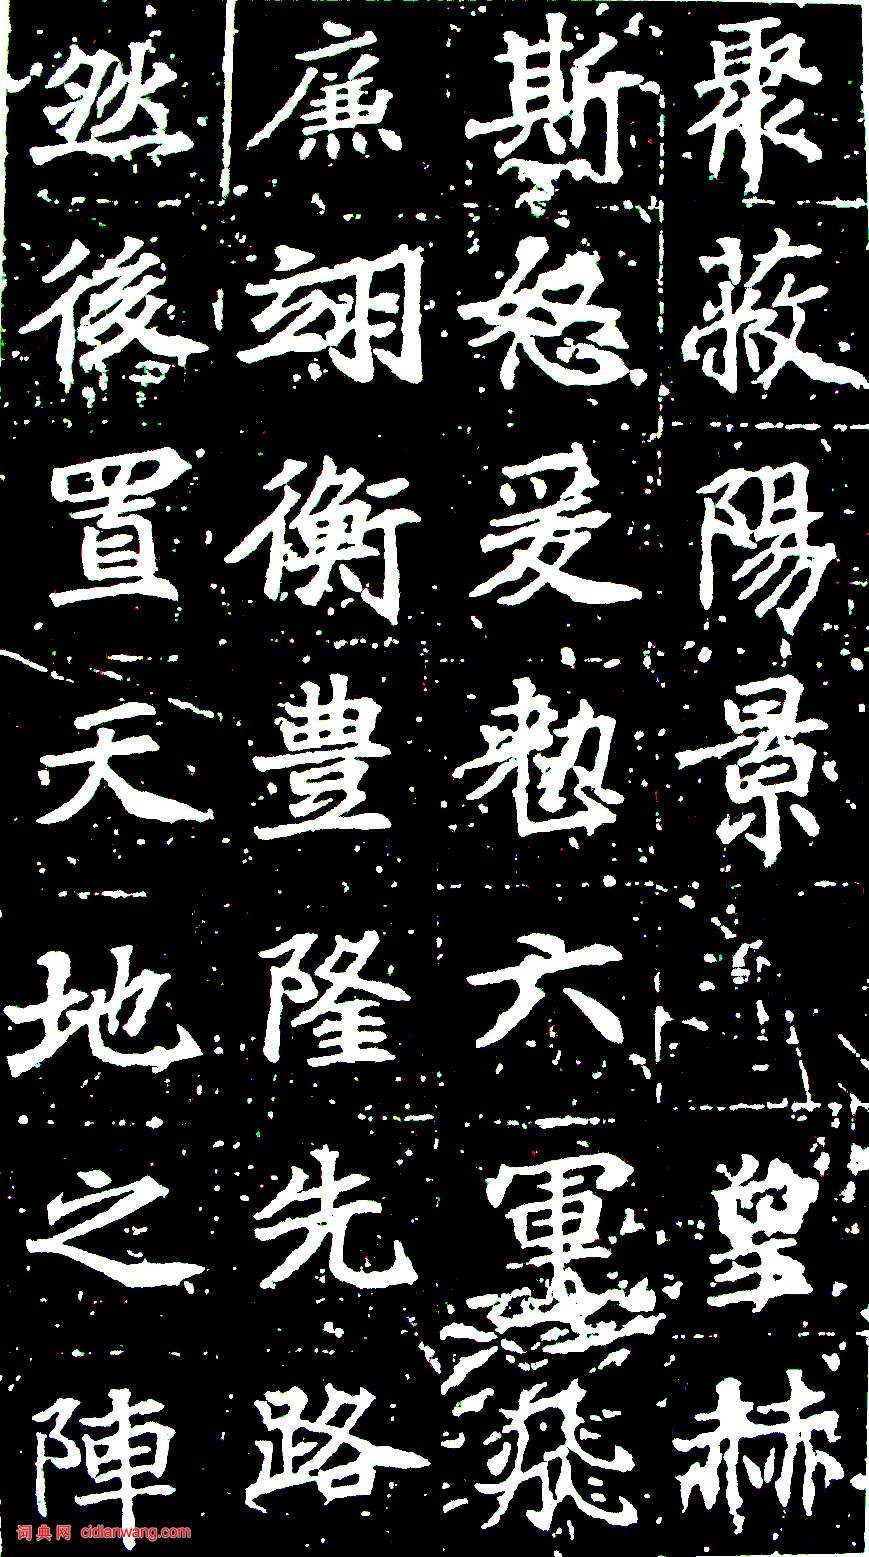 聚蔽陽景 皇赫
斯怒爰六軍飛
廉翊衡豐隆先路
然後置天地之陣
词典网 cidianwang.com